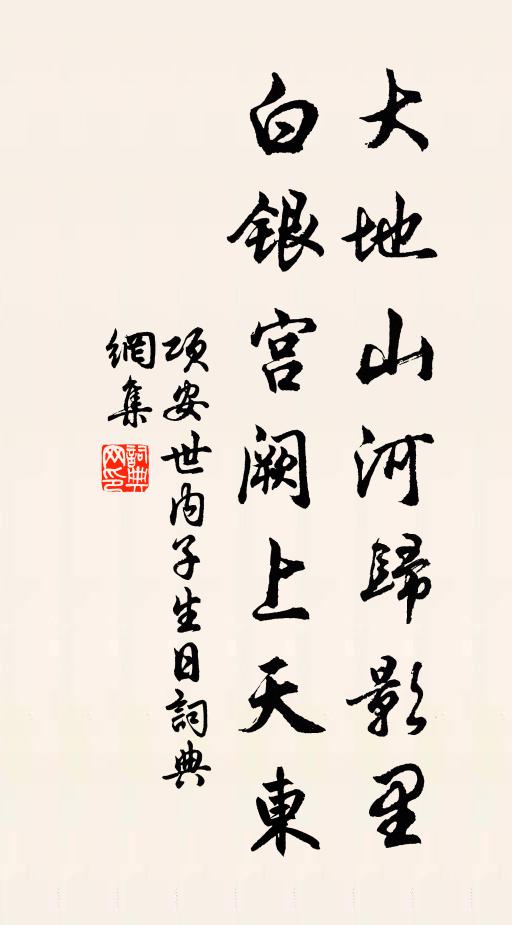 大地山河歸影里
白銀宮闕上天東
項安世內子生日詞典
網集
詞典
网印